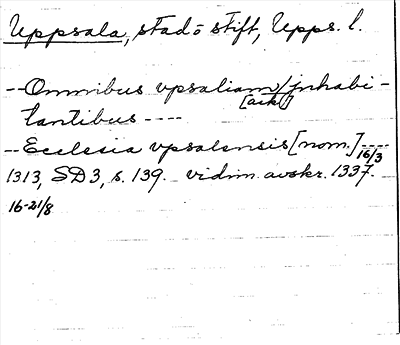 Uppsala, stad o stift, Upps. l.
-- Omnibus vpsaliam [ack.] / jnhabi-
tantibus ----
-- Ecclesia vpsalensis [nom.] ---- 16/3
1313, SD3, s. 139. vidim. avskr. 1337.
16-21/8